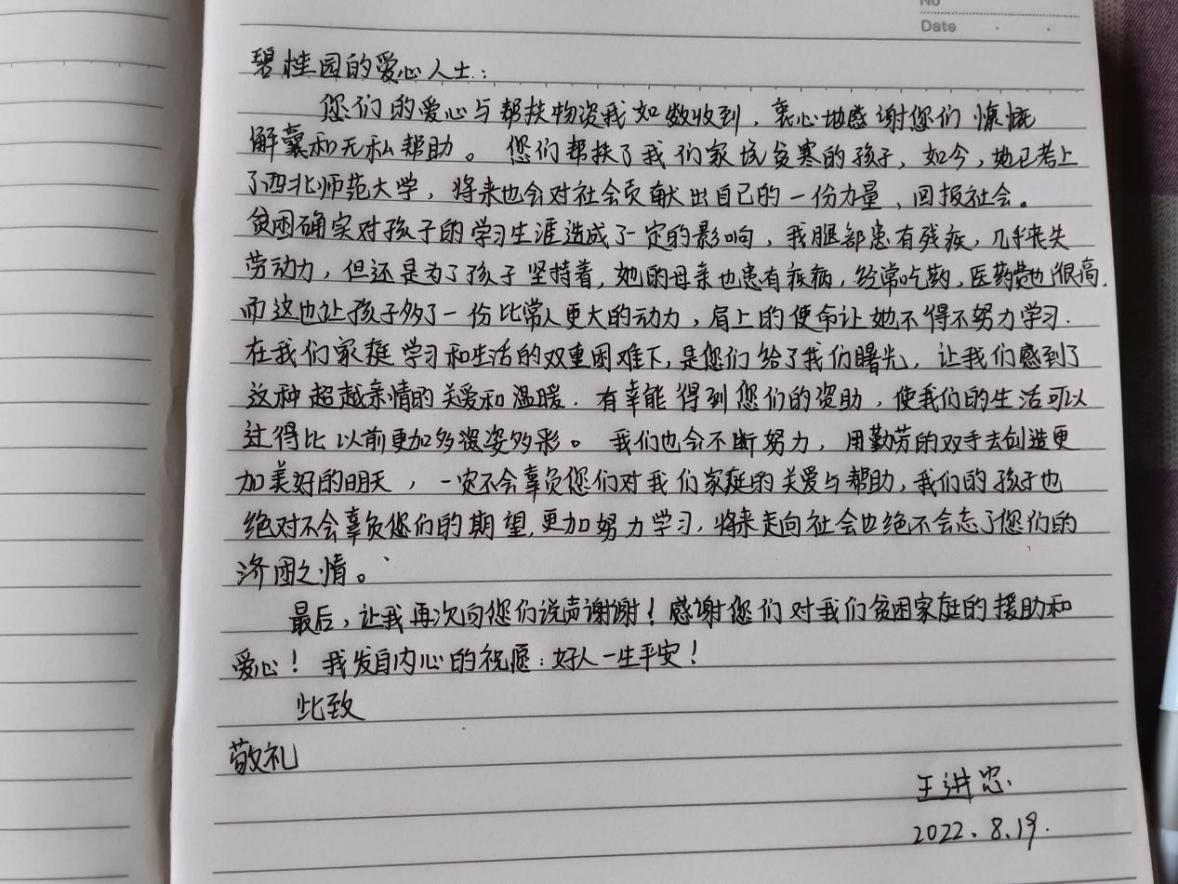 No
Date
碧桂园的爱心人士:
您们的爱心与帮扶物资我如数收到，衷心地感谢您们慷慨
解囊和无私帮助。您们帮扶了我们家境贫寒的孩子，如今，她已考上
了西北师范大学，将来也会对社会贡献出自己的一份力量、回报社会。
贫困确实对孩子的学习生涯造成了一定的影响，我腿部患有残疾，几乎丧失
劳动力，但还是为了孩子坚持着，她的母亲也患有疾病，经常吃药，医药费也很高.
而这也让孩子多了一份比常人更大的动力，肩上的使命让她不得不努力学习.
在我们家庭学习和生活的双重困难下，是您们给了我们曙光，让我们感到了
这种超越亲情的关爱和温暖．有幸能得到您们的资助，使我们的生活可以
过得比以前更加多姿多彩。我们也会不断努力，用勤劳的双手去创造更
加美好的明天，一定不会辜负您们对我们家庭的关爱与帮助，我们的孩子也
绝对不会辜负您们的期望，更加努力学习，将来走向社会也绝不会忘了您们的
济困之情。
最后，让我再次向您们说声谢谢！感谢您们对我们贫困家庭的援助和
爱心！我发自内心的祝愿：好人一生平安！
此致
敬礼
王进忠
2022.8.19.